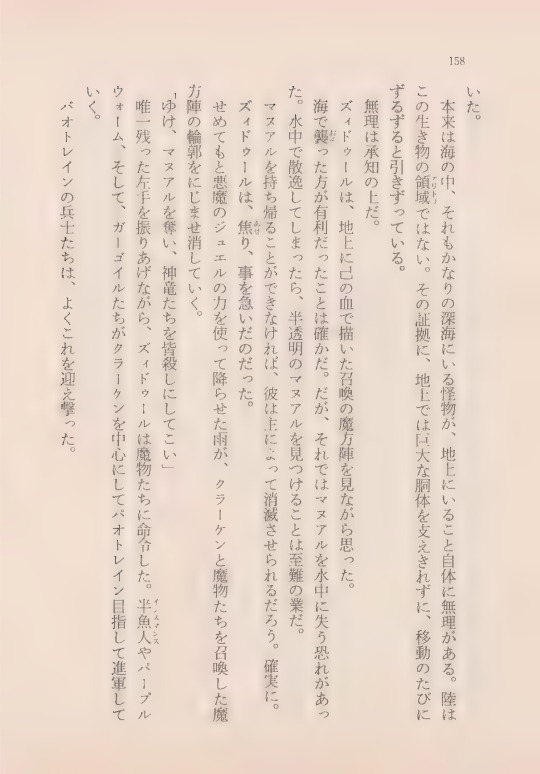 158
いた。
本来は海の中、それもかなりの深海にいる怪物が、地上にいること自体に無理がある。陸は
この生き物の領域ではない。その証拠に、地上では巨大な胴体を支えきれずに、移動のたびに
ずるずると引きずっている。
無理は承知の上だ。
ズィドゥールは、地上に己の血で描いた召喚の魔方陣を見ながら思った。
海で襲った方が有利だったことは確かだ。だが、それではマヌアルを水中に失う恐れがあっ
た。水中で散逸してしまったら、半透明のマヌアルを見つけることは至難の業だ。
マヌアルを持ち帰ることができなければ、彼は主によって消滅させられるだろう。確実に。
ズィドゥールは、焦り、事を急いだのだった。
せめてもと悪魔のジュエルの力を使って降らせた雨が、クラーケンと魔物たちを召喚した魔
方陣の輪郭をにじませ消していく。
「ゆけ、マヌアルを奪い、神竜たちを皆殺しにしてこい」
唯一残った左手を振りあげながら、ズィドゥールは魔物たちに命令した。半魚人やパープル
ウォーム、そして、ガーゴイルたちがクラーケンを中心にしてパオトレイン目指して進軍して
いく。
パオトレインの兵士たちは、よくこれを迎え撃った。